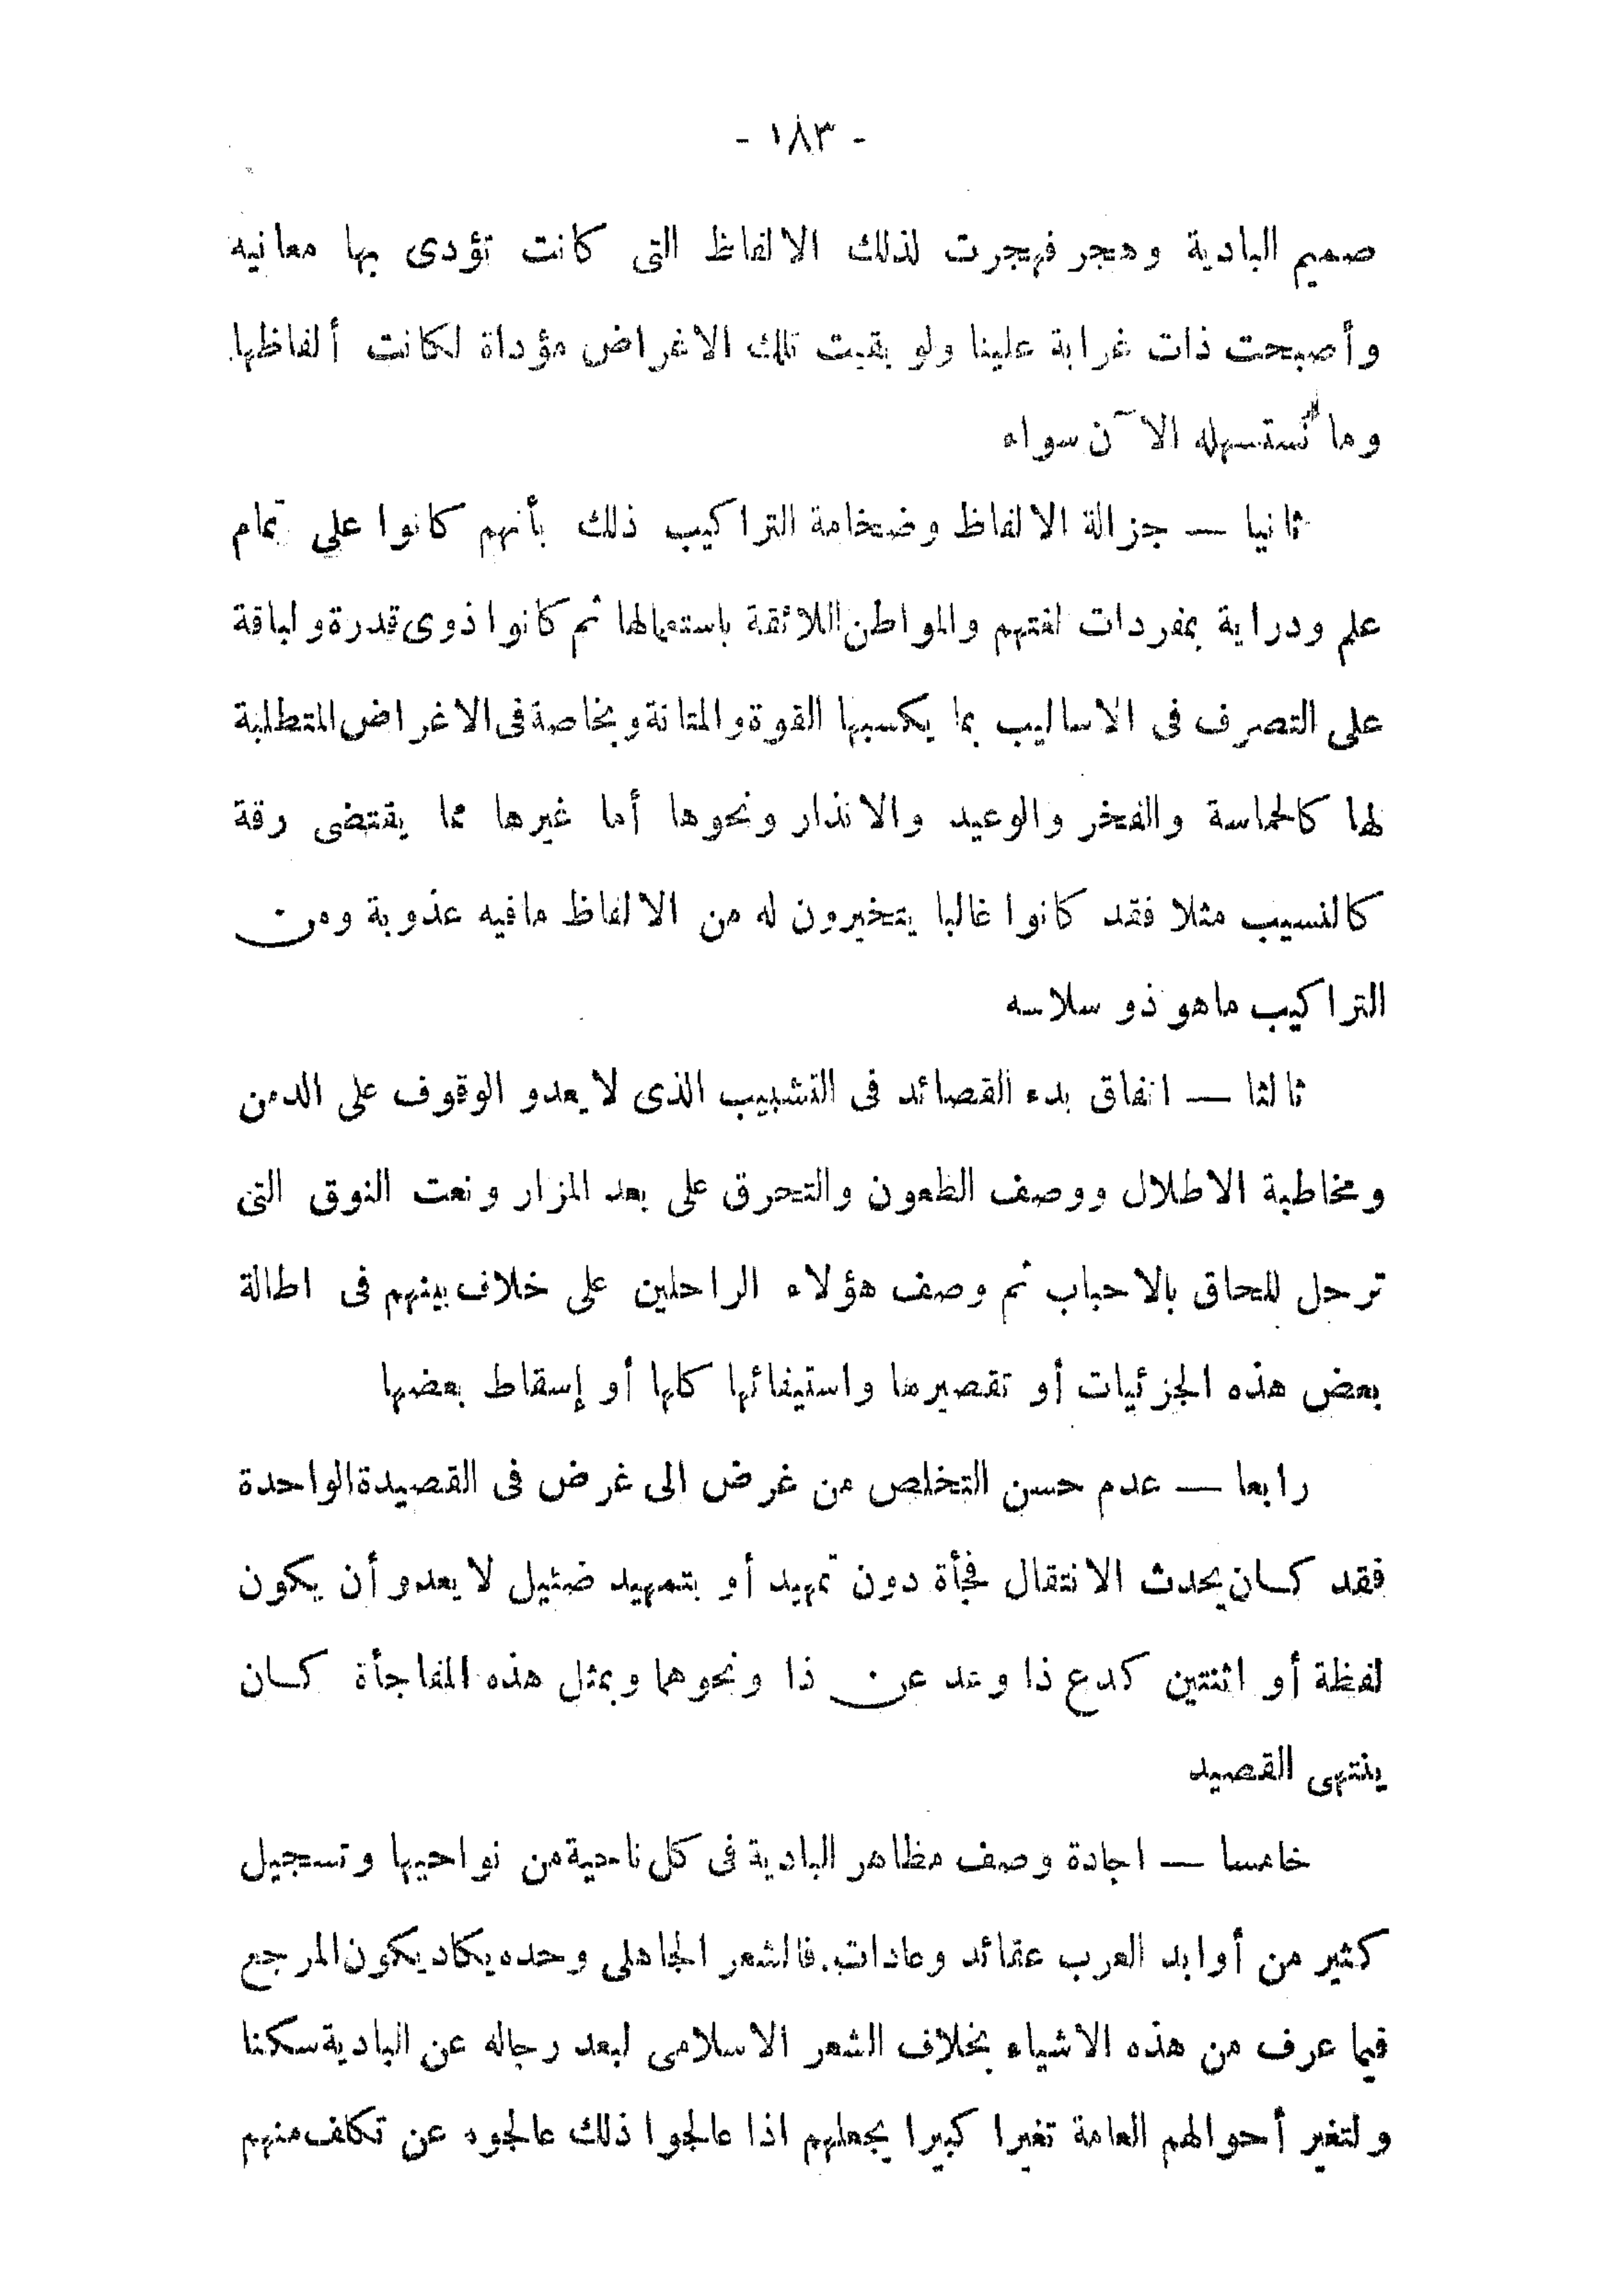 - ١٨٣ -
صميم البادية وهجر فهجرت لذلك الالفاظ التى كانت تؤدى بها معانيه
وأصبحت ذات غرابة علينا ولو بقيت تلك الاغراض مؤداة لكانت ألفاظها
وما نستسهله الآن سواء
ثانيا — جزالة الالفاظ وضخامة التراكيب ذلك بأنهم كانوا على تمام
علم ودراية بمفردات لغتهم والمواطن اللائقة باستعمالها ثم كانوا ذوى قدرة ولباقة
على التصرف فى الاساليب بما يكسبها القوة والمتانة وبخاصة فى الاغراض المتطلبة
لها كالحماسة والفخر والوعيد والانذار ونحوها أما غيرها مما يقتضى رقة
كالنسيب مثلا فقد كانوا غالبا يتخيرون له من الالفاظ مافيه عذوبة ومن
التراكيب ماهو ذو سلاسه
ثالثا — اتفاق بدء القصائد فى التشبيب الذى لايعدو الوقوف على الدمن
ومخاطبة الاطلال ووصف الظعون والتحرق على بعد المزار ونعت النوق التى
ترحل للحاق بالاحباب ثم وصف هؤلاء الراحلين على خلاف بينهم فى اطالة
بعض هذه الجزئيات أو تقصيرها واستيفائها كلها أو إسقاط بعضها
رابعا — عدم حسن التخلص من غرض الى غرض فى القصيدة الواحدة
فقد كان يحدث الانتقال فجأة دون تمهيد أو بتمهيد ضئيل لايعدو أن يكون
لفظة أو اثنتين كدع ذا وعد عن ذا ونحوهما وبمثل هذه المفاجأة كان
ينتهى القصيد
خامسا — اجادة وصف مظاهر البادية فى كل ناحية من نواحيها وتسجيل
كثير من أوابد العرب عقائد وعادات. فالشعر الجاهلى وحده يكاد يكون المرجع
فيما عرف من هذه الاشياء بخلاف الشعر الاسلامى لبعد رجاله عن البادية سكنا
ولتغير أحوالهم العامة تغيرا كبيرا يجعلهم اذا عالجوا ذلك عالجوه عن تكلف منهم